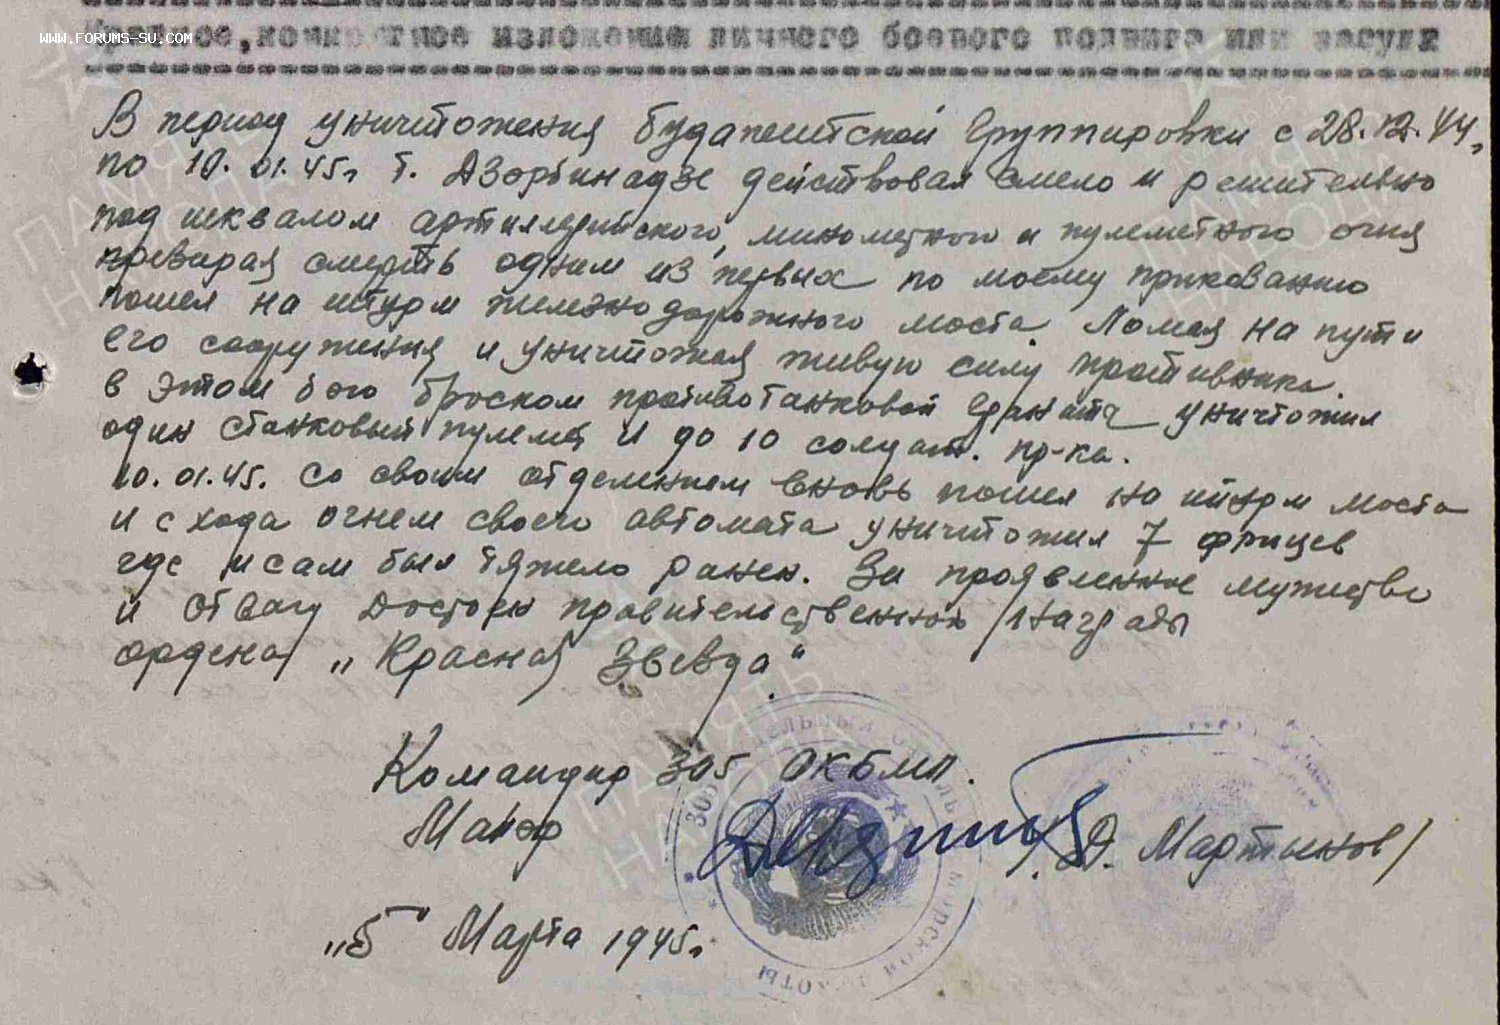 www.forums-su.com
Краткое, конкретное изложение личного боевого подвига или заслуг
В период уничтожения будапештской группировки с 28.12.44г.
по 10.01.45г т. Дзарбинадзе действовал смело и решительно
под шквалом артиллерийского, минометного и пулеметного огня
презирая смерть одним из первых по моему приказанию
пошел на штурм железнодорожного моста. Ломая на пути
его сооружения и уничтожая живую силу противника.
в этом бою броском противотанковой гранаты уничтожил
один станковый пулемет и до 10 солдат. пр-ка.
10.01.45. со своим отделением вновь пошел на штурм моста
и с хода огнем своего автомата уничтожил 7 фрицев
где и сам был тяжело ранен. За проявленное мужество
и отвагу достоин правительственной награды
ордена „Красная Звезда“
Командир 305 ОКБМП.
Майор /Д. Мартынов/
„5" Марта 1945г.
305 МОРСКОЙ ПЕХОТЫ
ПАМЯТЬ НАРОДА